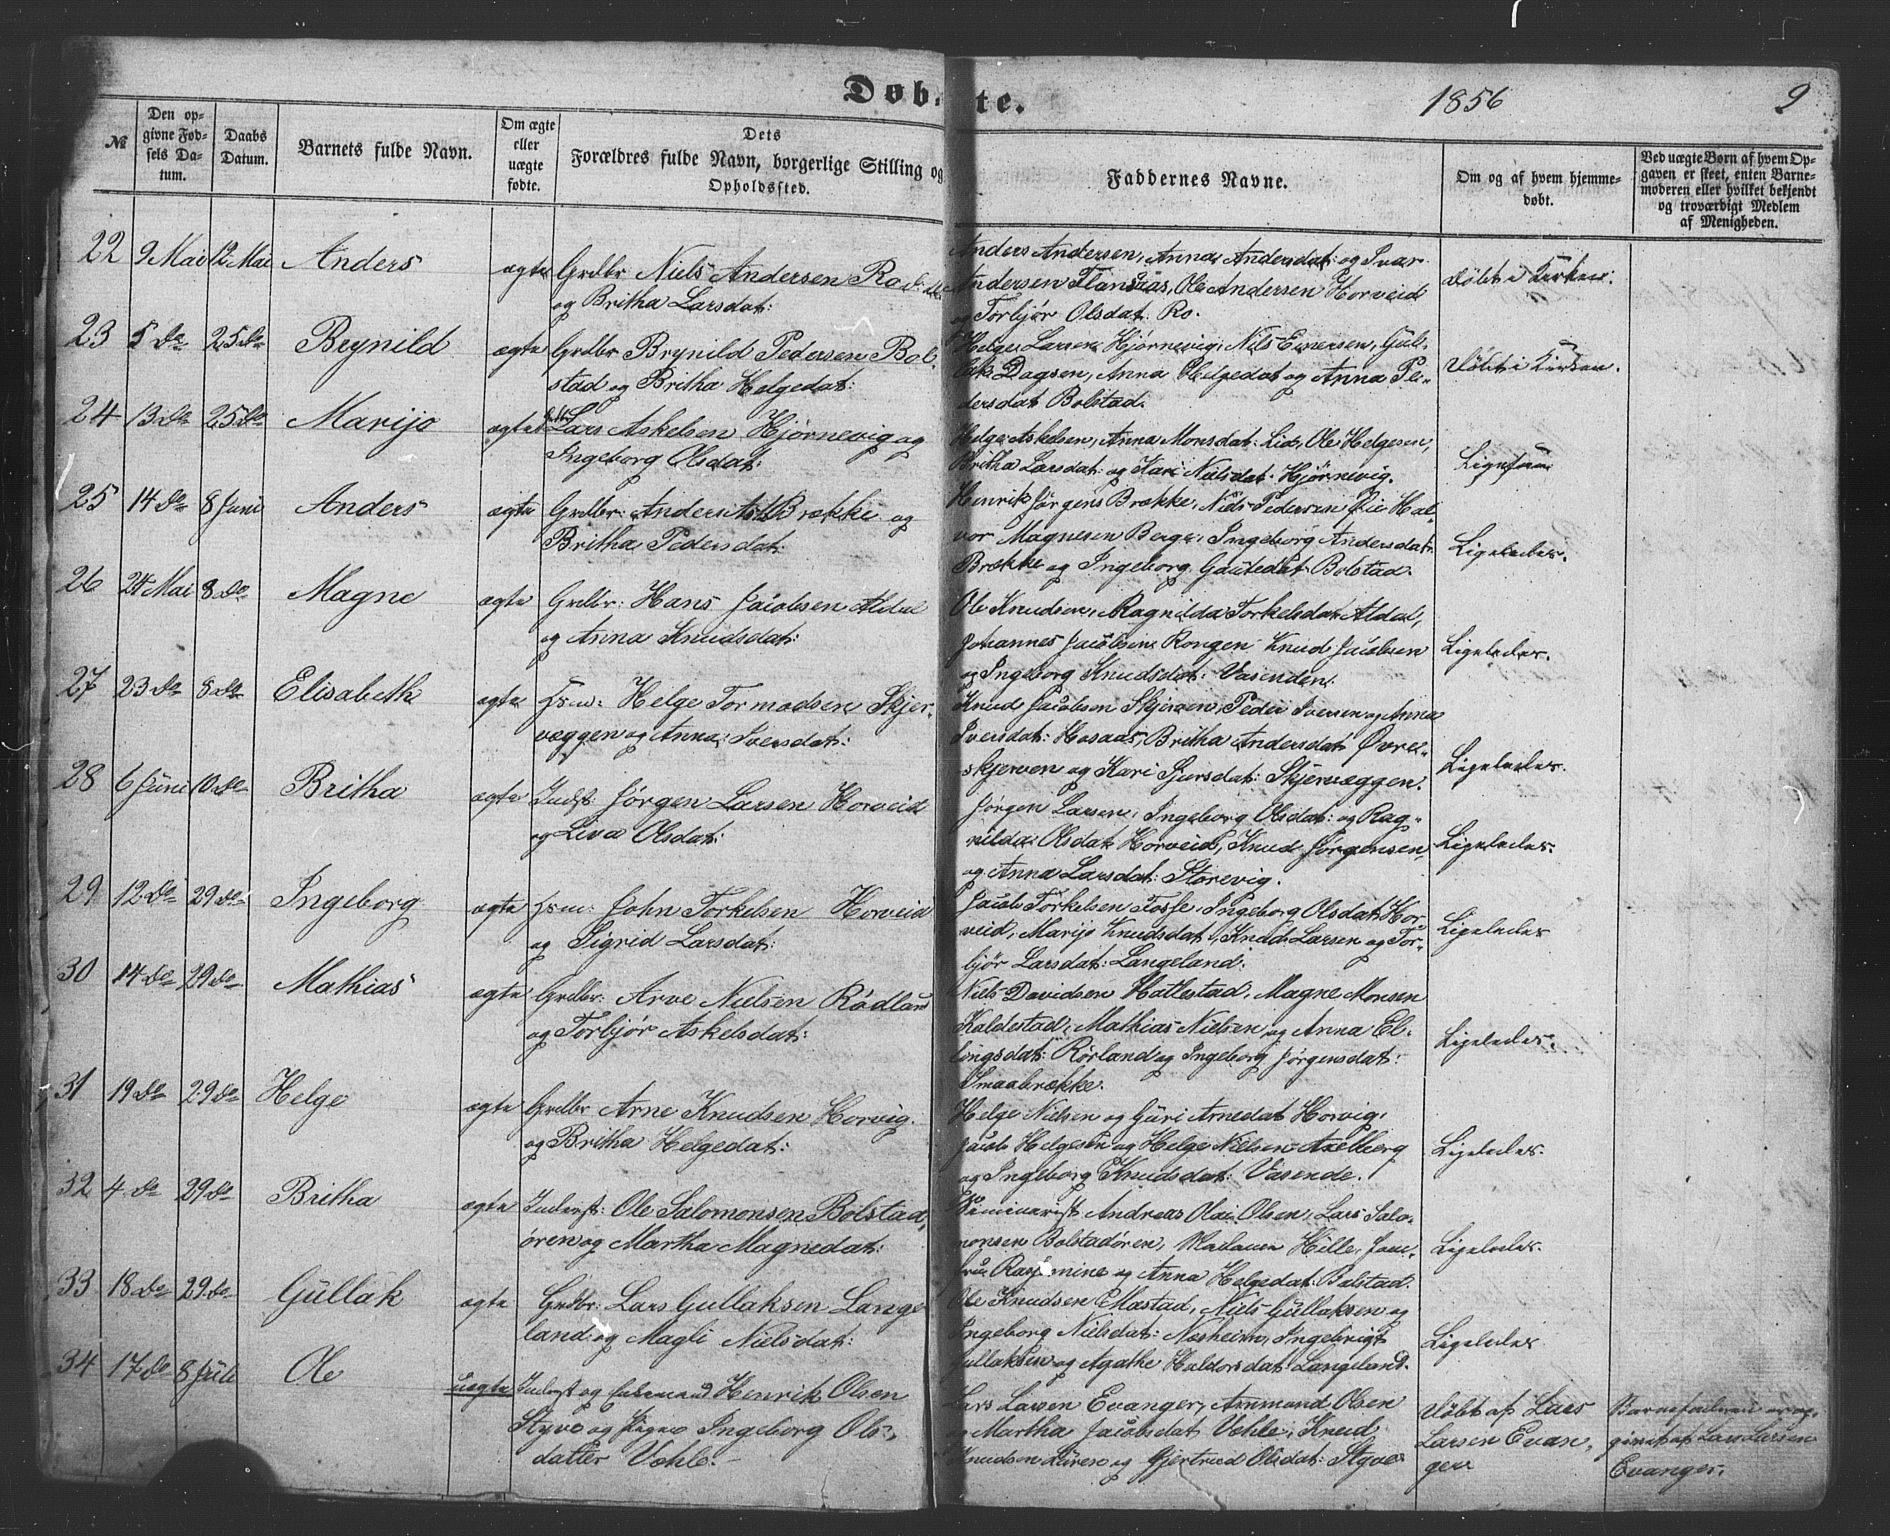 Døb. te. 1856 9
№
Den op-
givne Fød-
sels Da-
tum.
Daabs
Datum.
Barnets fulde Navn.
Om ægte
eller
uægte
fødte.
Dets
Forældres fulde Navn, borgerlige Stilling og
Opholdssted.
Faddernes Navne.
Om og af hvem hjemme-
døbt.
Ved uægte Børn af hvem Op-
gaven er skeet, enten Barne-
moderen eller hvilket bekjendt
og troværdigt Medlem
af Menigheden.
22 9 Mai 12 Mai Anders ægte Grdbr Niels Andersen Ro
og Britha Larsdat:
Anders Andersen, Anna Andersdat: og Ivar
Andersen Flansaas, Ole Andersen Horveid
og Torbjør Olsdat: Ro.
Døbt i Kirken.
23 5 Do 25 Do Brynild ægte Grdbr Brynild Pedersen Bol-
stad og Britha Helgedat:
Helge Larsen Hjørnevig, Nils Einersen, Gul-
lak Dagsen, Anna Helgedat og Anna Pe-
dersdat Bolstad.
Døbt i Kirken.
24 13 Do 25 Do Marijo ægte Lars Askelsen Hjørnevig og
Ingeborg Olsdat:
Helge Askelsen, Anna Monsdat: Lid, Ole Helgesen,
Britha Larsdat: og Kari Nielsdat: Hjørnevig.
Ligesaa
25 14 Do 8 Juni Anders ægte Grdbr: Anders Brække og
Britha Pedersdat:
Henrik Jørgens Brække, Niels Pedersen Hal-
vor Magnesen Berge, Ingeborg Andersdat:
Brække og Ingeborg Gautedat: Bolstad.
Ligeledes.
26 24 Mai 8 Do Magne ægte Grdbr: Hans Jacobsen Aldal
og Anna Knudsdat:
Ole Knudsen, Ragnilda Torkelsdat: Aldal,
Johannes Jacobsen Rongen Knud Jacobsen
og Ingeborg Knudsdat: Vasenden.
Ligeledes.
27 23 Do 8 Do Elisabeth ægte Hsm: Helge Tormodsen Skjer-
væggen og Anna Iversdat:
Knud Jacobsen Skjerven, Peder Iversen og Anna
Iversdat: Hosaas, Britha Andersdat Øvre-
skjerven og Kari Sjursdat: Skjervæggen.
Ligeledes.
28 6 Juni 10 Do Britha ægte Indst: Jørgen Larsen Horveid
og Liva Olsdat:
Jørgen Larsen, Ingeborg Olsdat: og Rag-
nilda Olsdat: Horveid, Knud Jørgensen,
og Anna Larsdat: Storevig.
Ligeledes.
29 12 Do 29 Do Ingeborg ægte Hsm: John Torkelsen Horveid
og Sigrid Larsdat:
Jacob Torkelsen Fosse, Ingeborg Olsdat: Hor-
veid, Marijo Knudsdat, Knud Larsen og Tor-
bjør Larsdat: Langeland.
Ligeledes
30 14 Do 29 Do Mathias ægte Grdbr: Arve Nielsen Rødland
og Torbjør Askelsdat:
Niels Davidsen Hatlestad, Magne Monsen
Kaldestad, Mathias Nielsen og Anna El-
lingsdat: Rørland og Ingeborg Jørgensdat:
Smaabrække.
Ligeledes.
31 19 Do 29 Do Helge ægte Grdbr Arne Knudsen Horvig.
og Britha Helgedat:
Helge Nielsen og Guri Arnedat Horvig,
Jacob Helgesen og Helge Nielsen Axelberg
og Ingeborg Knudsdat: Vasende.
Ligeledes.
32 4 Do 29 Do Britha ægte Inderst: Ole Salomonsen Bolstad,
øren og Martha Magnedat:
Seminarist Andreas Olai Olsen, Lars Salo-
monsen Bolstadøren, Madame Hille, Jom-
fru Rasmine og Anna Helgedat: Bolstad.
Ligeledes.
33 18 Do 29 Do Gullak ægte Grdbr: Lars Gullaksen Lange-
land og Magli Nielsdat:
Ole Knudsen Mæstad, Niels Gullaksen og
Ingeborg Nielsdat: Næsheim, Ingebrigt
Gullaksen og Agathe Haldorsdat Langeland.
Ligeledes
34 17 Do 8 Juli Ole uægte Inderst og Henrik Olsen
Styve og Pigen Ingeborg Ols-
datter Vohle.
Lars Larsen Evanger, Ammund Olsen
og Martha Jacobsdat Vohle, Knud
Knudsen og Gjertrud Olsdat: Styve
Døbt af Lars
Larsen Evan-
ger
Barnefaderen er op-
givet af Lars Larsen
Evanger.